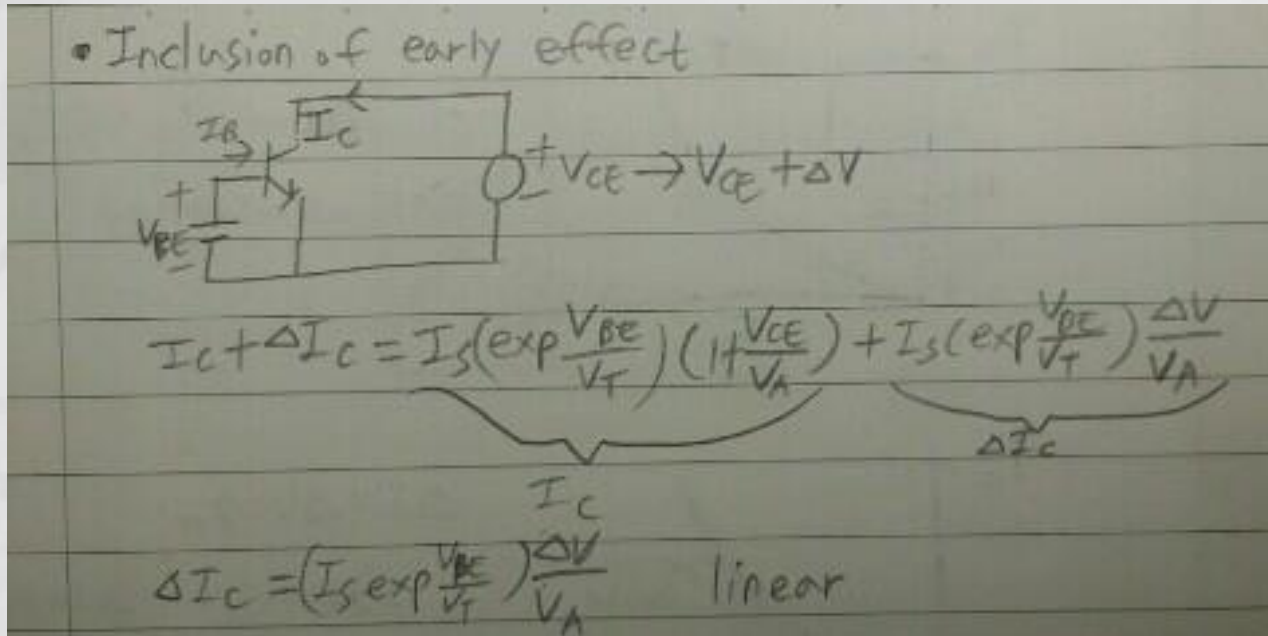 • Inclusion of early effect
I_B
I_C
+
V_BE
−
+
−
V_CE → V_CE + ΔV
I_C + ΔI_C = I_S(exp V_BE/V_T)(1+V_CE/V_A) + I_S(exp V_BE/V_T) ΔV/V_A
I_C
ΔI_C
ΔI_C = (I_S exp V_BE/V_T) ΔV/V_A linear